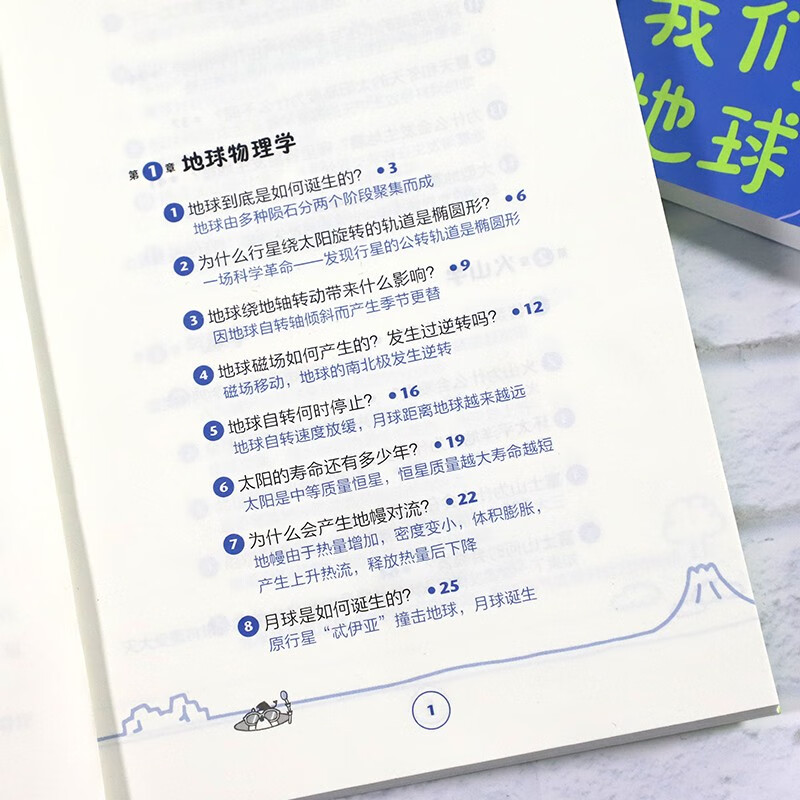 第1章 地球物理学
1 地球到底是如何诞生的？ •3
地球由多种陨石分两个阶段聚集而成
2 为什么行星绕太阳旋转的轨道是椭圆形？ •6
一场科学革命——发现行星的公转轨道是椭圆形
3 地球绕地轴转动带来什么影响？ •9
因地球自转轴倾斜而产生季节更替
4 地球磁场如何产生的？发生过逆转吗？ •12
磁场移动，地球的南北极发生逆转
5 地球自转何时停止？ •16
地球自转速度放缓，月球距离地球越来越远
6 太阳的寿命还有多少年？ •19
太阳是中等质量恒星，恒星质量越大寿命越短
7 为什么会产生地幔对流？ •22
地幔由于热量增加，密度变小，体积膨胀，
产生上升热流，释放热量后下降
8 月球是如何诞生的？ •25
原行星“忒伊亚”撞击地球，月球诞生
1
我们
地球